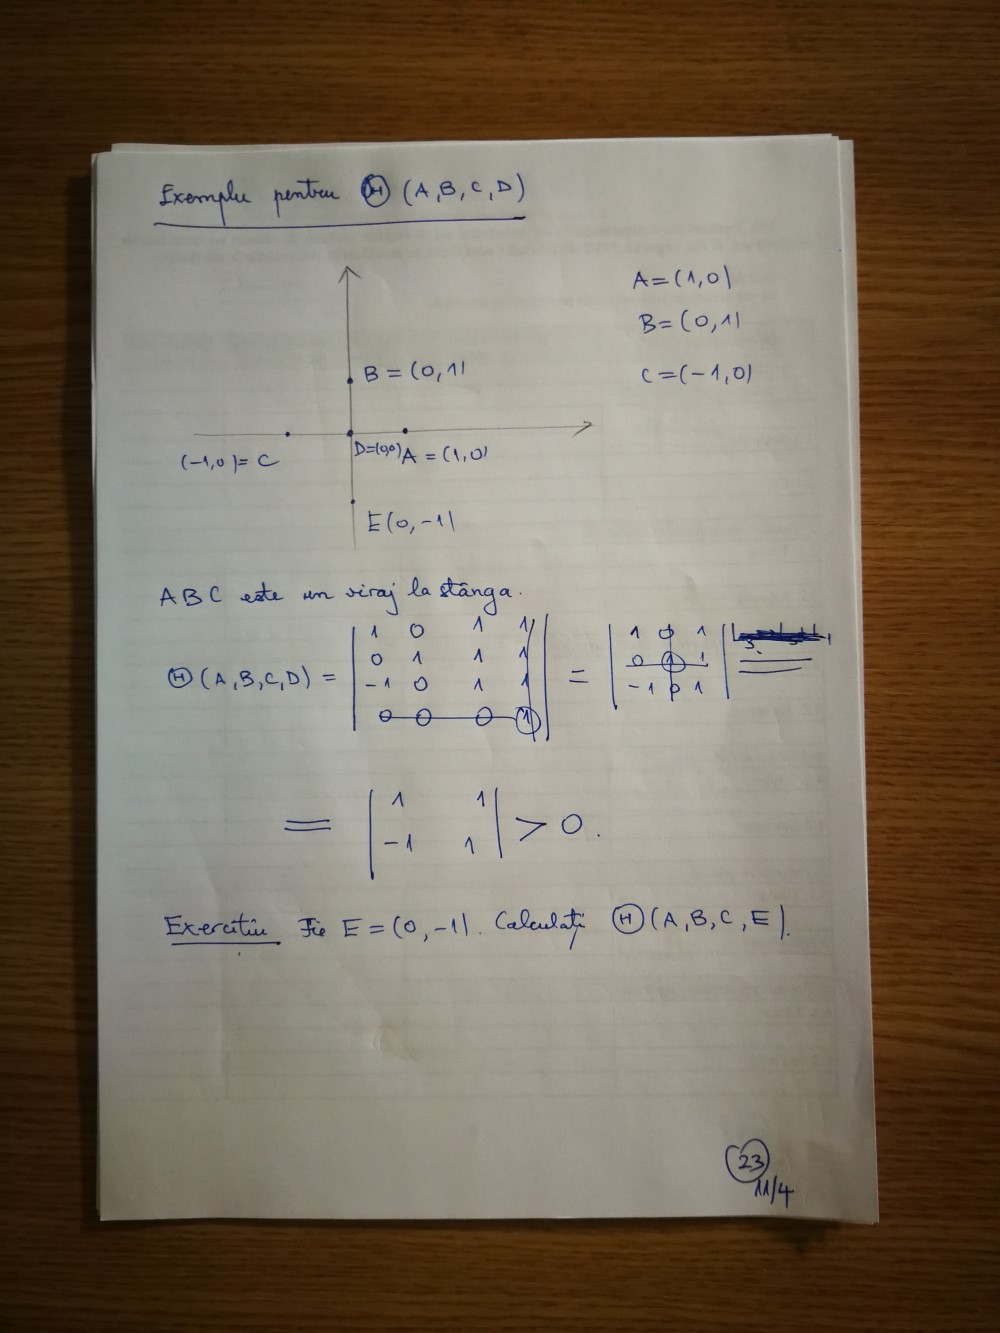 Exemplu pentru Ⓗ (A,B,C,D)
A=(1,0)
B=(0,1)
C=(-1,0)
B=(0,1)
(-1,0)=C
D=(0,0)
A=(1,0)
E(0,-1)
ABC este un viraj la stânga.
1 0 1 1
0 1 1 1
-1 0 1 1
0 0 0 1
Ⓗ(A,B,C,D) = =
1 0 1
0 1 1
-1 0 1
= > 0.
1 1
-1 1
Exercitiu Fie E=(0,-1). Calculați Ⓗ(A,B,C,E).
23
11/4